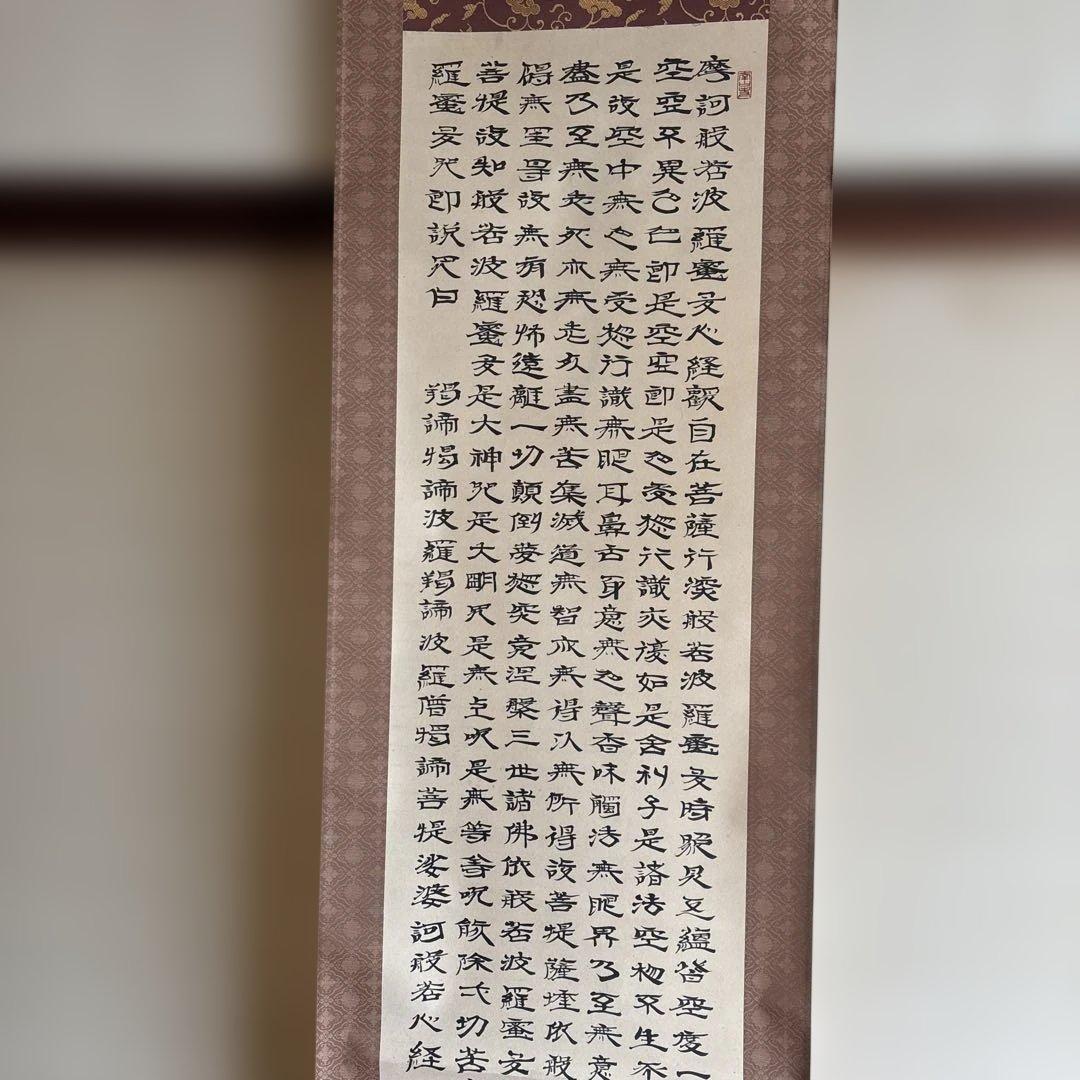 摩訶般若波羅蜜多心経觀自在菩薩行深般若波羅蜜多時照見五蘊皆空度一
空空不異色色即是空空即是色受想行識亦復如是舍利子是諸法空相不生不
是故空中無色無受想行識無眼耳鼻舌身意無色聲香味觸法無眼界乃至無意
盡乃至無老死亦無老死盡無苦集滅道無智亦無得以無所得故菩提薩埵依般
碍無罣㝵故無有恐怖遠離一切顛倒夢想究竟涅槃三世諸佛依般若波羅蜜多
菩提故知般若波羅蜜多是大神咒是大明咒是無上呪是無等等呪能除一切苦
羅蜜多咒即説咒曰 羯諦羯諦波羅羯諦波羅僧羯諦菩提娑婆訶般若心経